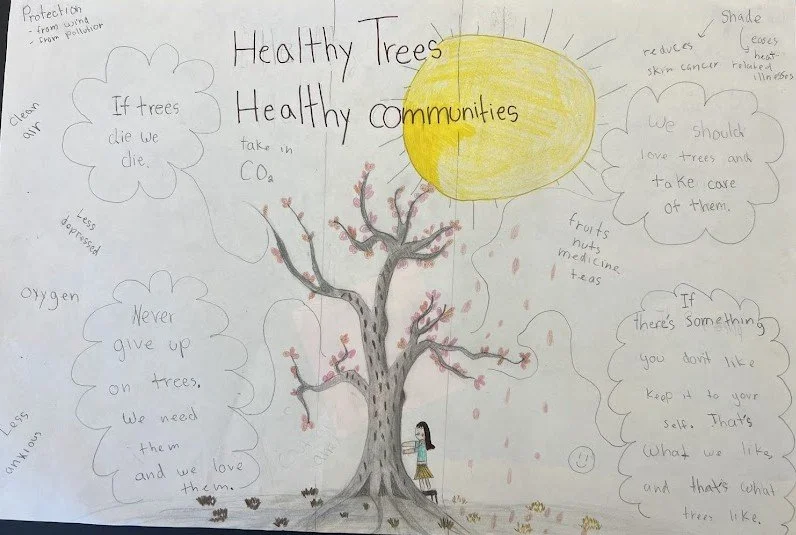 Protection
- from wind
- from pollution
Healthy Trees
Healthy communities
Shade
reduces
skin cancer
eases
heat
related
illnesses
clean
air
If trees
die we
die.
take in
CO2
We should
love trees and
take care
of them.
Less
depressed
fruits
nuts
medicine
teas
oxygen
Never
give up
on trees.
We need
them
and we love
them.
If
there's something
you dont like
keep it to your
self. That's
what we like,
and that's what
trees like.
Less
anxious